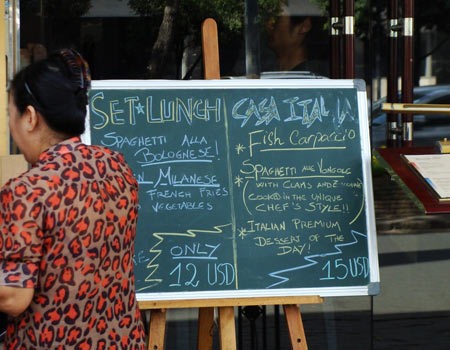 SET LUNCH
SPAGHETTI ALLA
BOLOGNESE!
MILANESE
FRENCH FRIES
VEGETABLES
ONLY
12 USD
CASA ITALIA
* Fish Carpaccio
* SPAGHETTI ALLE VONGOLE
WITH CLAMS AND
(COOKED IN THE UNIQUE
CHEF'S STYLE!!
* ITALIAN PREMIUM
DESSERT OF THE
DAY!
15 USD